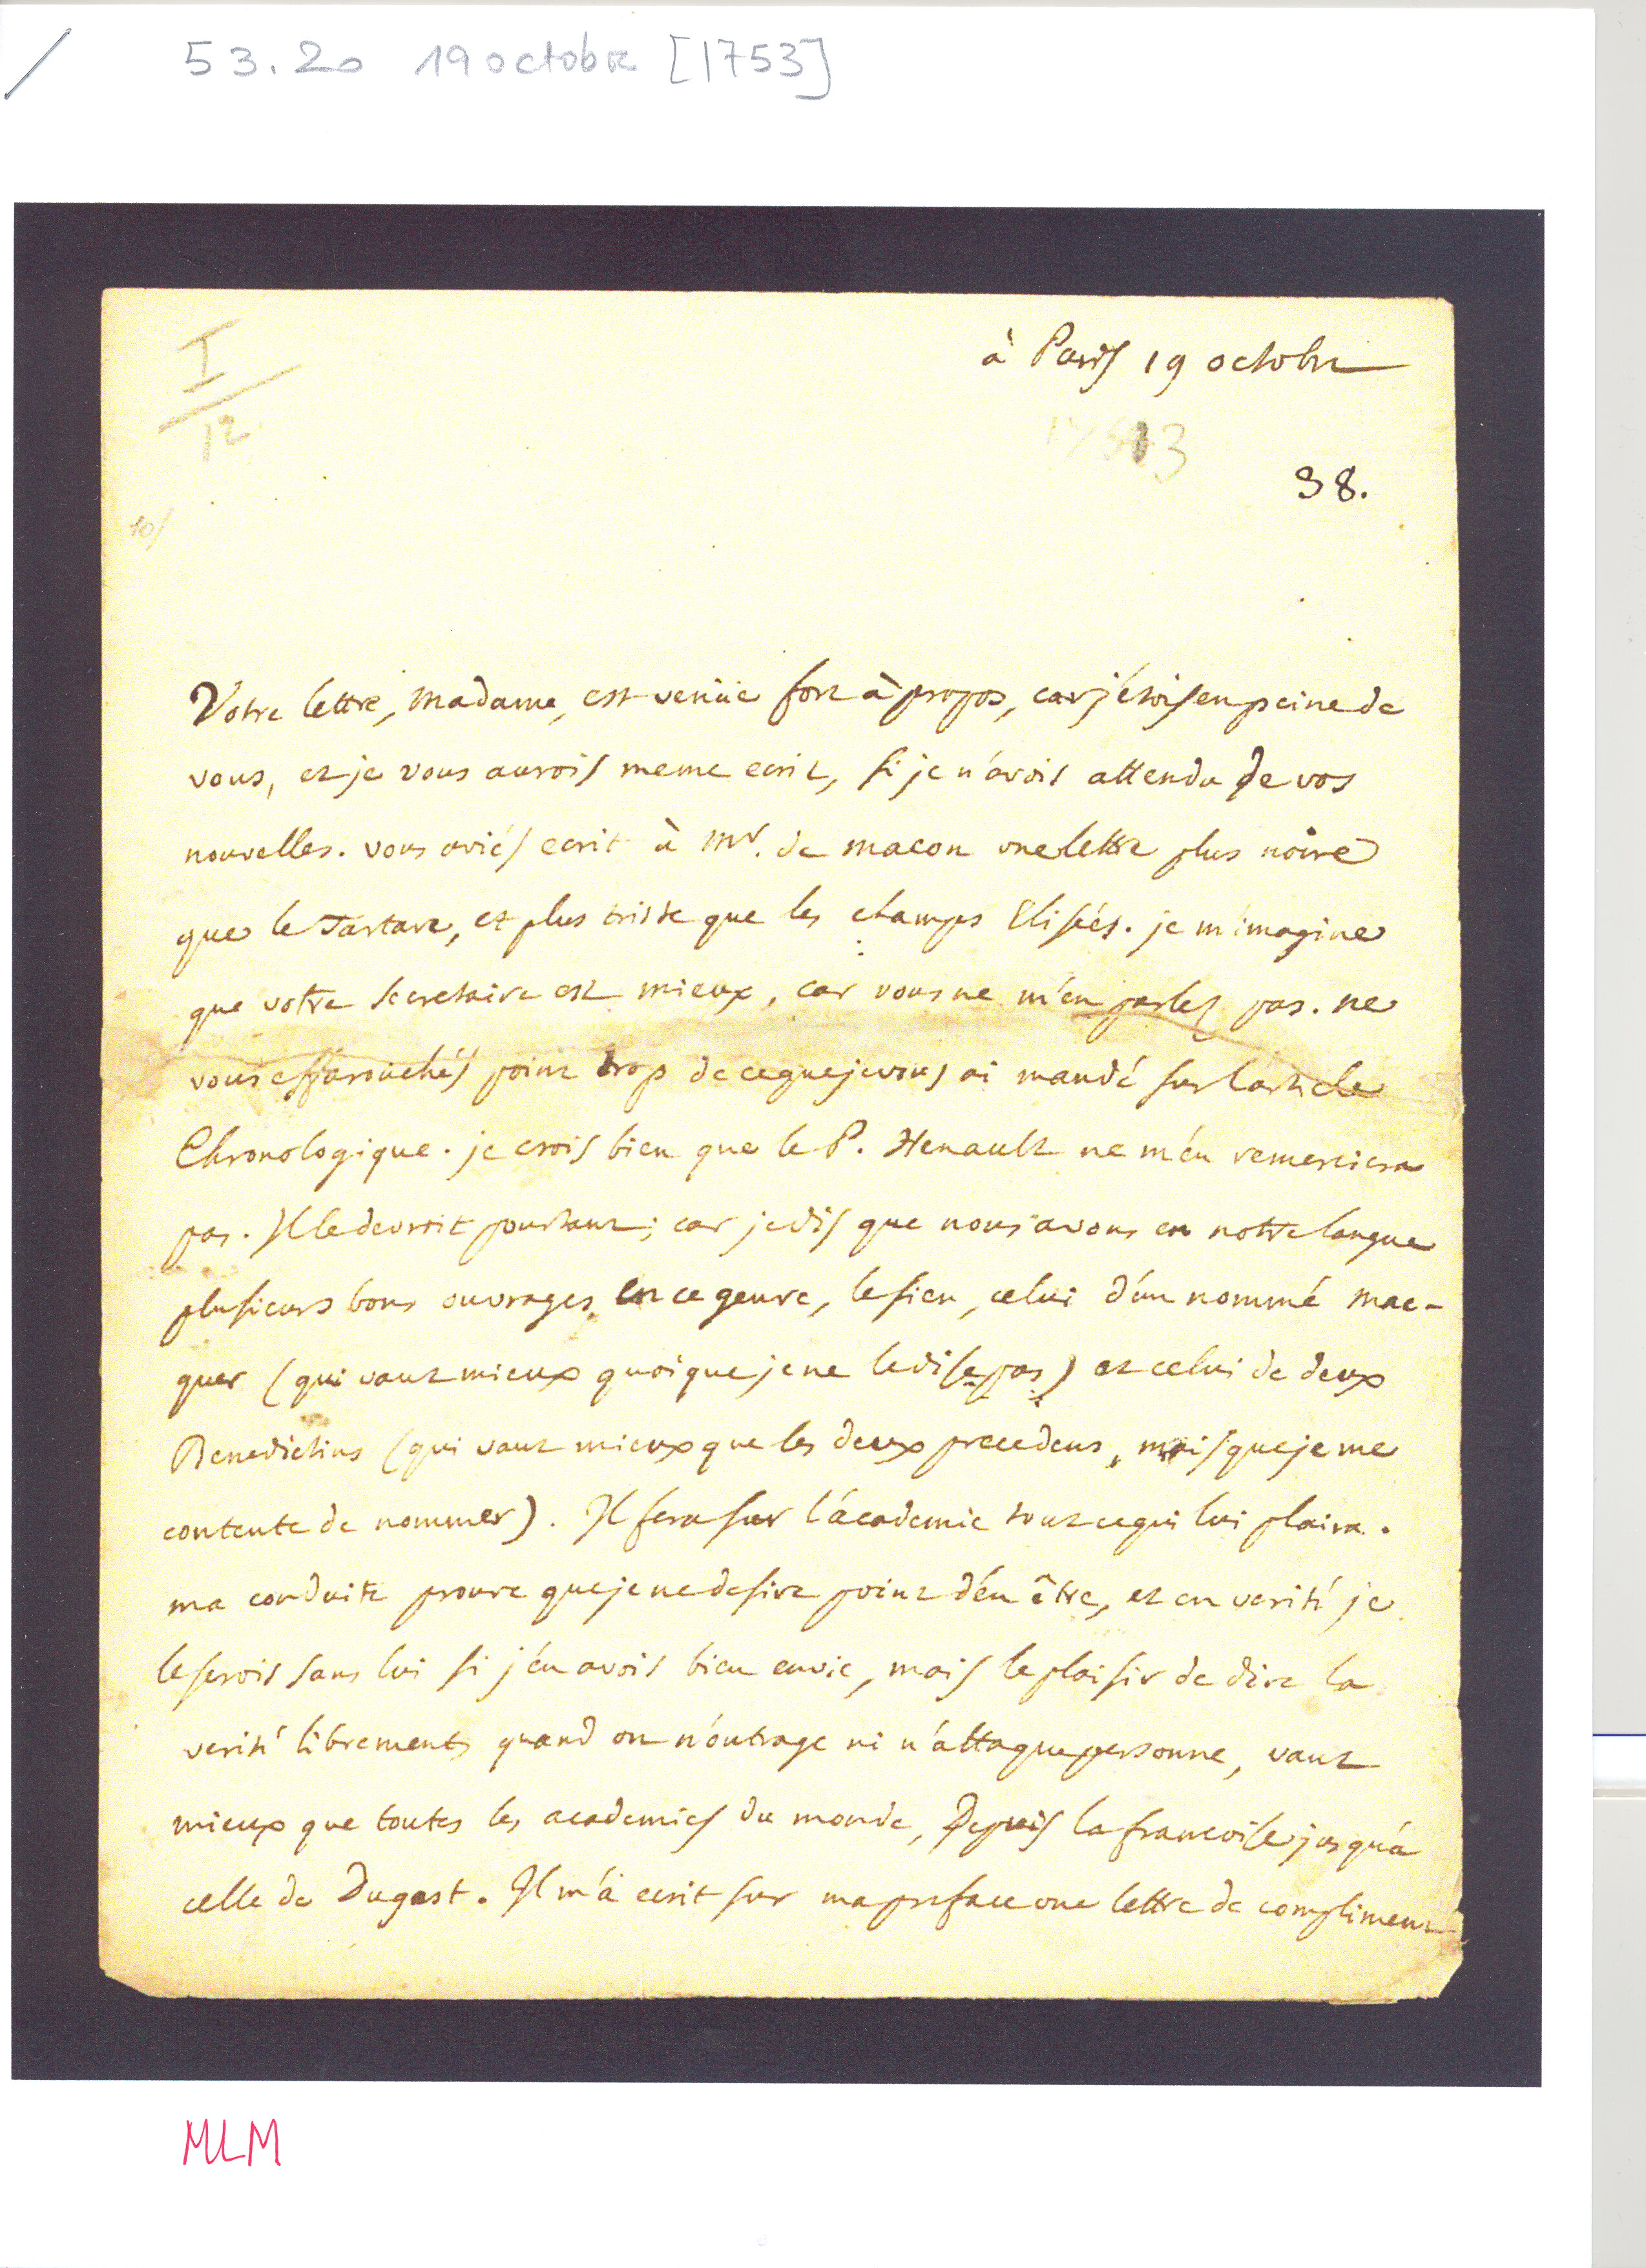 53.20 19 octobre [1753]
I
12
à Paris 19 octobre
38.
10/
Votre lettre, Madame, est venüe fort à propos, car j'étois en peine de
vous, et je vous aurois meme ecrit, si je n'avois attendu de vos
nouvelles. vous aviés ecrit à Mr. de macon une lettre plus noire
que le Tartare, et plus triste que les champs Elisées. je m'imagine
que votre secretaire est mieux, car vous ne m'en parlez pas. ne
vous effarouchés point trop de ce que je vous ai mandé sur l'article
Chronologique. je crois bien que le P. Henault ne m'en remerciera
pas. Il le devroit pourtant; car je dis que nous avons en notre langue
plusieurs bons ouvrages en ce genre, le sien, celui d'un nommé Mac-
quer (qui vaut mieux quoique je ne le dise pas) et celui de deux
Benedictins (qui vaut mieux que les deux precedens, mais que je me
contente de nommer). Il fera sur l'academie tout ce qui lui plaira.
ma conduite prouve que je ne desire point d'en être, et en verité je
le serois sans lui si j'en avois bien envie, mais le plaisir de dire la
verité librement quand on n'outrage ni n'attaque personne, vaut
mieux que toutes les academies du monde, Depuis la francoise jusqu'a
celle de Dugast. Il m'a ecrit sur ma preface une lettre de compliment
MLM